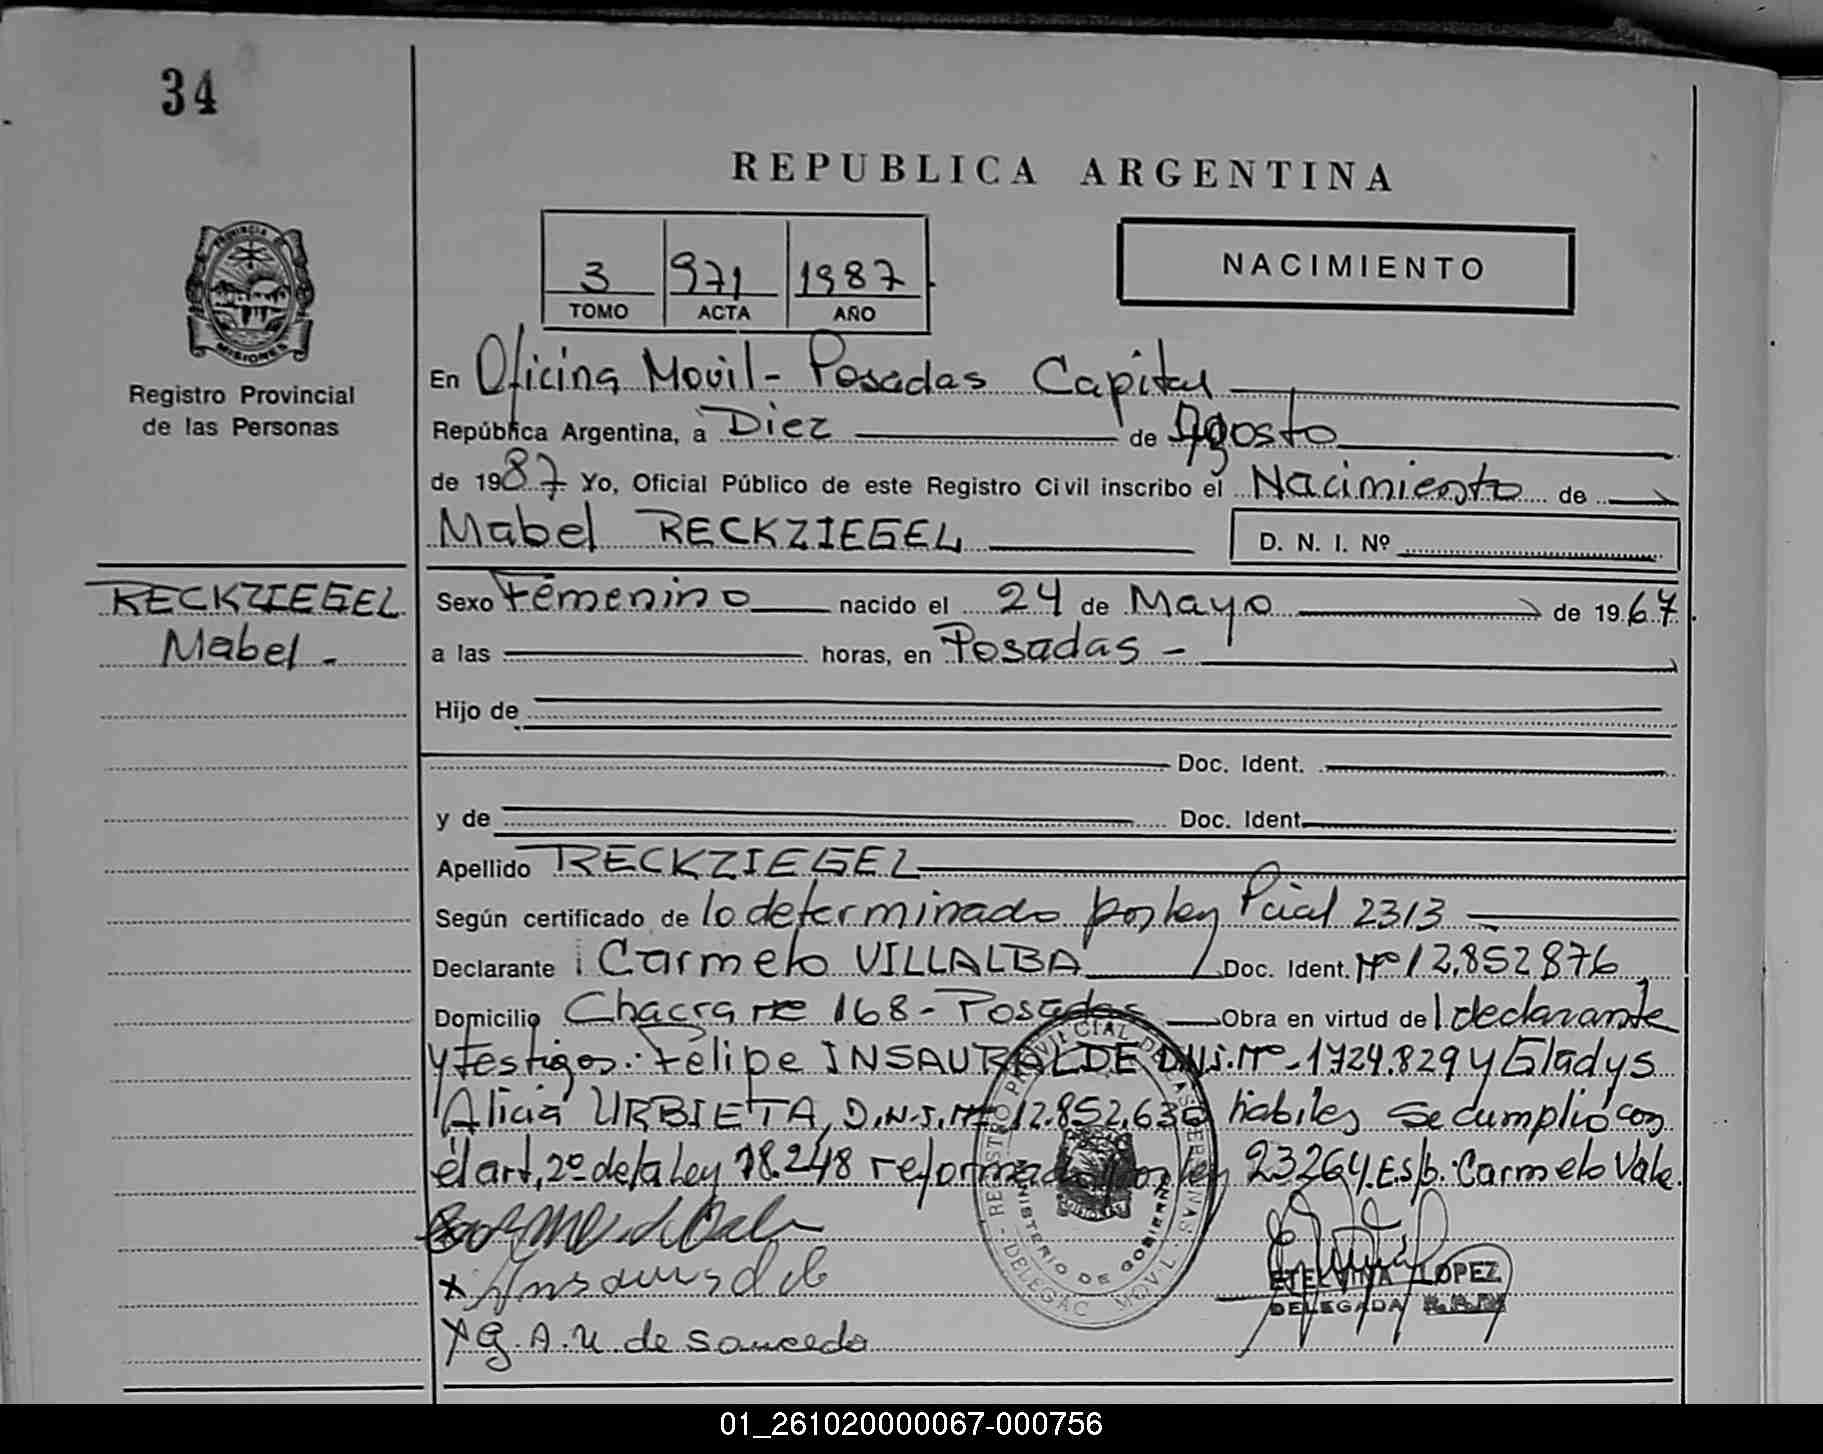 34
REPUBLICA ARGENTINA
PROVINCIA DE
MISIONES
Registro Provincial
de las Personas
3 971 1987
TOMO ACTA AÑO
NACIMIENTO
En Oficina Movil - Posadas Capital
República Argentina, a Diez de Agosto
de 1987 Yo, Oficial Público de este Registro Civil inscribo el Nacimiento de
Mabel RECKZIEGEL D. N. I. Nº
RECKZIEGEL
Mabel -
Sexo Femenino nacido el 24 de Mayo de 1967
a las horas, en Posadas -
Hijo de
Doc. Ident.
y de Doc. Ident.
Apellido RECKZIEGEL
Según certificado de lo determinado por ley Pcial 2313
Declarante Carmelo VILLALBA Doc. Ident. Nº 12.852876
Domicilio Chacra 168 - Posadas Obra en virtud de l declarante
y testigos: Felipe INSAURALDE D.N.I. Nº 1724.829 y Gladys
Alicia URBIETA, D.N.I. Nº 12.852.630 habiles Se cumplió con
el art, 2º de la Ley 18.248 reformado por ley 23264. E.s/b. Carmelo Vale.
REGISTRO PROVINCIAL DE LAS PERSONAS
MINISTERIO DE GOBIERNO
DELEGAC MOVIL
x Insaurralde
ETELVINA LOPEZ
DELEGADA
x G. A. U. de Saucedo
01_261020000067-000756